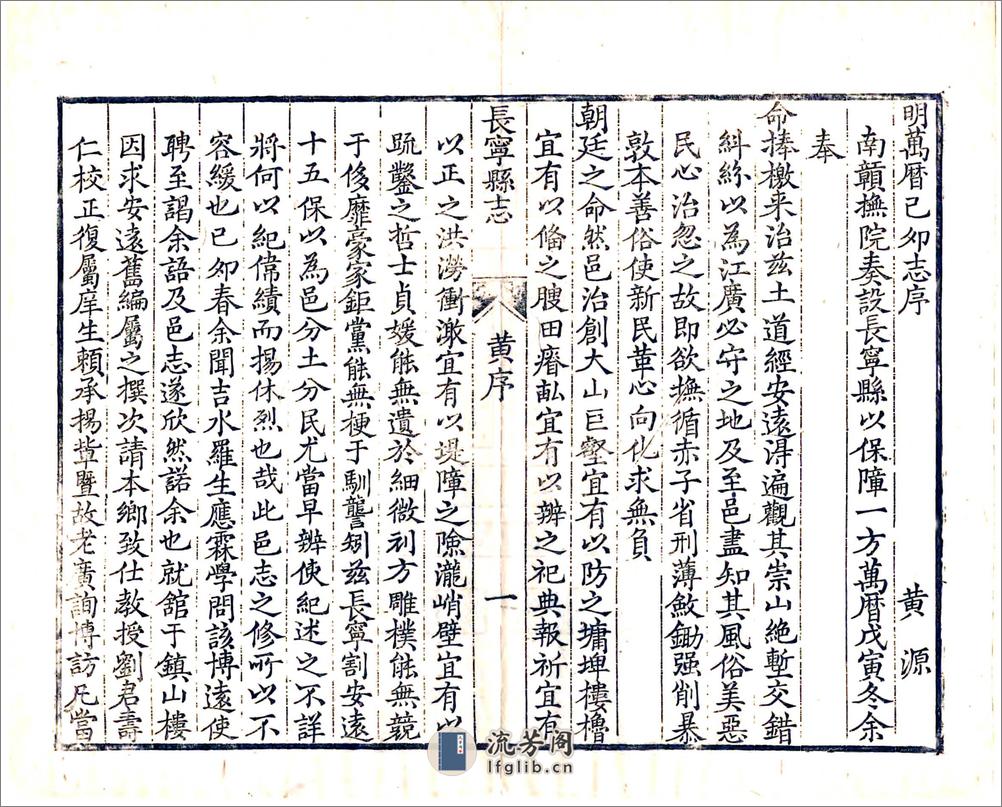 明萬曆己夘志序
黄源
南贛撫院奏設長寧縣以保障一方萬曆戊寅冬余
奉
命捧檄来治兹土道經安遠淂遍觀其崇山絶塹交錯
糾絲以為江廣必守之地及至邑盡知其風俗美惡
民心治忽之故即欲撫循赤子省刑薄斂鋤强削暴
敦本善俗使新民革心向化求無負
朝廷之命然邑治創大山巨壑宜有以防之墉埤樓櫓
宜有以偹之膄田瘠畝宜有以辨之祀典報祈宜有
長寧縣志
黄序
一
以正之洪澇衝潡宜有以堤障之險瀧峭壁宜有以
疏鑿之哲士貞媛能無遺於細微刓方雕樸能無競
于侈靡豪家鉅黨能無梗于馴礱矧兹長寧割安遠
十五保以為邑分土分民尤當早辨使紀述之不詳
將何以紀偉績而揚休烈也哉此邑志之修所以不
容緩也己夘春余聞吉水羅生應霖學問該博遠使
聘至謁余語及邑志遂欣然諾余也就舘于鎮山樓
因求安遠舊編屬之撰次請本鄉致仕教授劉君壽
仁校正復屬庠生賴承揚軰暨故老廣詢博訪凡當
流芳阁
lfglib.cn